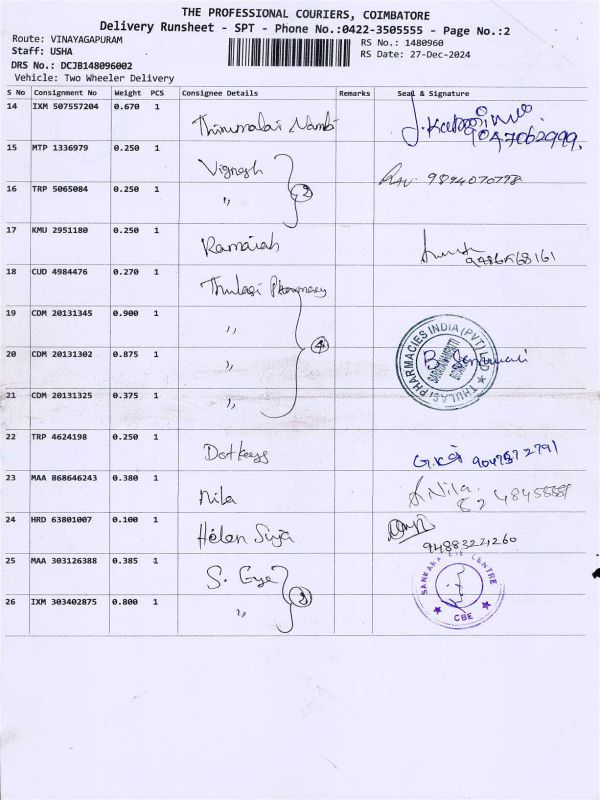 THE PROFESSIONAL COURIERS, COIMBATORE
Delivery Runsheet - SPT - Phone No.:0422-3505555 - Page No.:2
Route: VINAYAGAPURAM
RS No.: 1480960
Staff: USHA
RS Date: 27-Dec-2024
DRS No.: DCJB148096002
Vehicle: Two Wheeler Delivery
S No Consignment No Weight PCS Consignee Details Remarks Seal & Signature
14 IXM 507557204 0.670 1 Thirumalai Nambi
15 MTP 1336979 0.250 1 Vignesh 9894070778
16 TRP 5065084 0.250 1 ,, 2
17 KMU 2951180 0.250 1 Ramaiah
18 CUD 4984476 0.270 1 Thulasi Pharmacy
19 CDM 20131345 0.900 1 ,,
20 CDM 20131302 0.875 1 ,, 4
THULASI PHARMACIES INDIA (PVT) LTD
21 CDM 20131325 0.375 1 ,,
22 TRP 4624198 0.250 1 Dotkeys
23 MAA 868646243 0.380 1 Nila Nila
24 HRD 63801007 0.100 1 Helen Suja 94883221260
25 MAA 303126388 0.385 1 S. Eye
SANKARA EYE CENTRE CBE
26 IXM 303402875 0.800 1 ,,